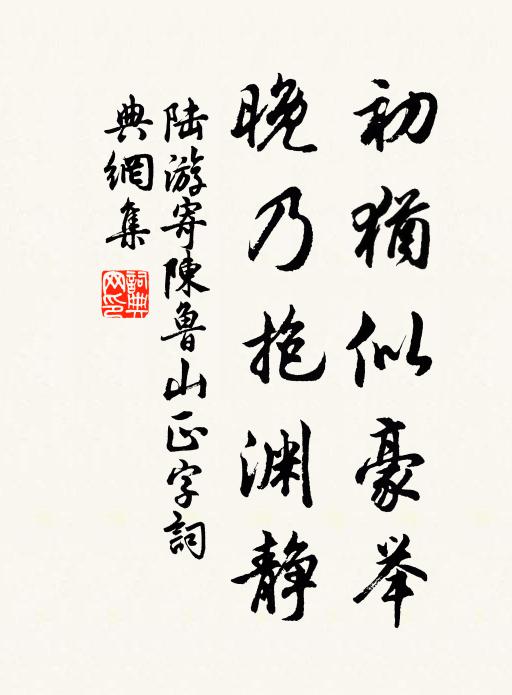 初猶似豪举
晚乃抱渊静
陆游寄陳魯山正字詞
典網集
詞典網印